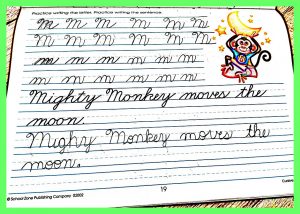 Practice writing the letter. Practice writing the sentence.
M M M M M M M
M M M M M M
m m m m m m m
m m m m m m m
Mighty Monkey moves the
moon.
Mighy Monkey moves the
moon.
19
© School Zone Publishing Company 02002
Cursive